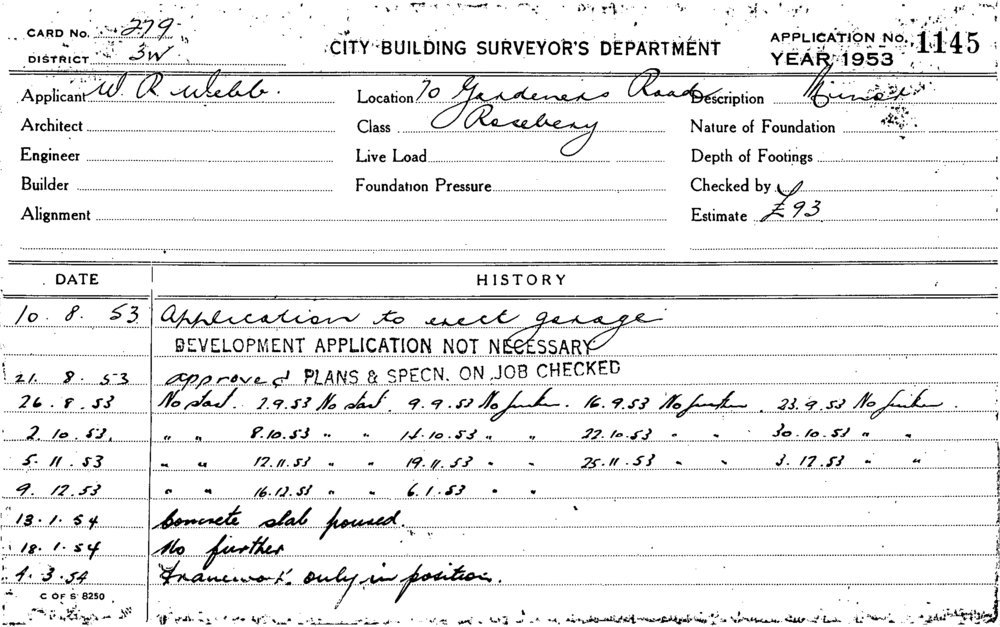 CARD No. 279
DISTRICT 3W
CITY BUILDING SURVEYOR'S DEPARTMENT
APPLICATION No. 1145
YEAR 1953
Applicant W R Webb. Location 70 Gardeners Road Description Minor
Architect Class Rosebery Nature of Foundation
Engineer Live Load Depth of Footings
Builder Foundation Pressure Checked by
Alignment Estimate £93
DATE HISTORY
10. 8. 53 Application to erect garage
DEVELOPMENT APPLICATION NOT NECESSARY
21. 8. 53 approved PLANS & SPECN. ON JOB CHECKED
26. 8. 53 No start. 2.9.53 No start. 9.9.53 No further. 16.9.53 No further. 23.9.53 No further.
2. 10. 53. " " 8.10.53 " " 14.10.53 " " 22.10.53 " " 30.10.53 " "
5. 11. 53 " " 12.11.53 " " 19.11.53 " " 25.11.53 " " 3.12.53 " "
9. 12. 53 " " 16.12.53 " " 6.1.53 " "
13. 1. 54 Concrete slab poured.
18. 1. 54 No further
4. 3. 54 Framework only in position.
C OF S 8250